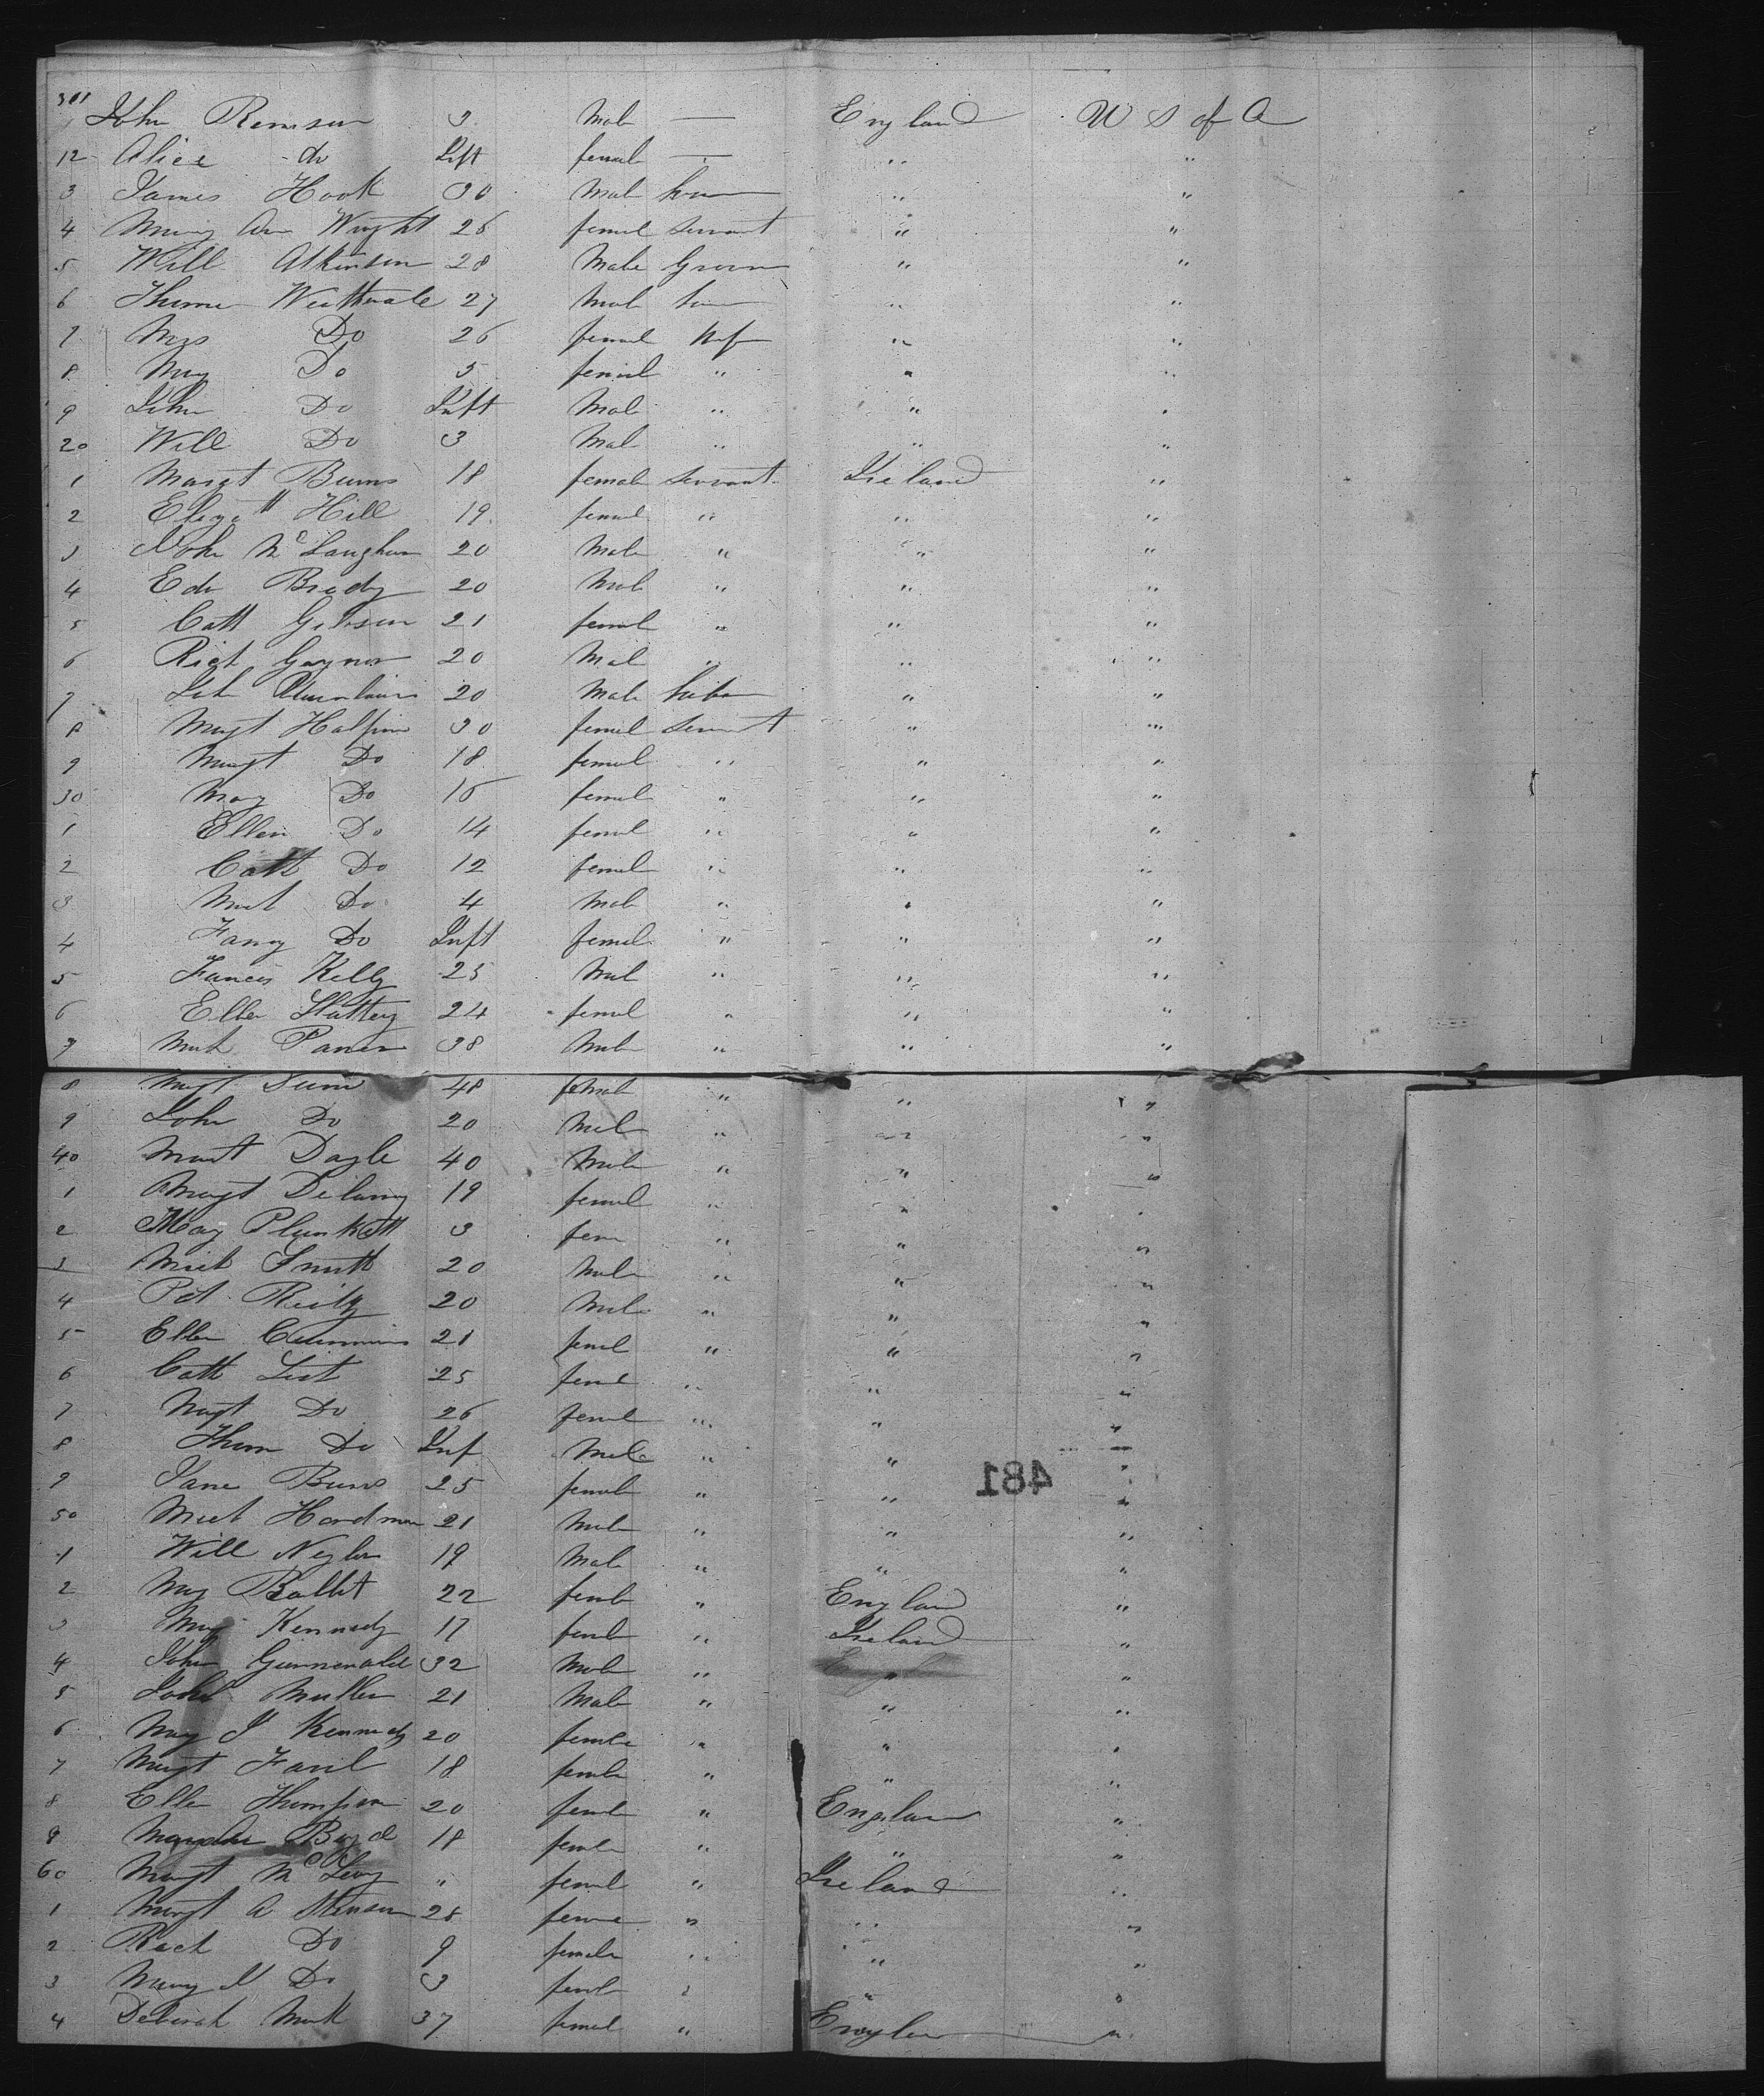 311 John Remson 3 Male — England U S of A
12 Alice do Inft female — " "
3 James Hook 30 Male " "
4 Mary Ann Wright 26 femal Servant " "
5 Will Atkinson 28 Male Groom " "
6 Thome 27 Male " "
7 Mrs Do 26 femal Wife " "
8 May Do 5 femal " " "
9 John Do Inft Male " " "
20 Will Do 3 Mal " " "
1 Margt Burns 18 female Servant Ireland "
2 Elizath Hill 19 femal " " "
3 John Mc Laughen 20 Male " " "
4 Edw Brady 20 Male " " "
5 Cath Gibson 21 femal " " "
6 Richt Gaynor 20 Mal " " "
7 20 Male " "
8 Margt Halpin 30 femal Servant " "
9 Margt Do 18 femal " " "
30 May Do 16 femal " " "
1 Ellen Do 14 femal " " "
2 Cath Do 12 femal " " "
3 Do 4 Male " " "
4 Fany Do Inft femal " " "
5 Frances Kelly 25 Mal " " "
6 Ellen Slattery 24 femal " " "
7 38 Male " " "
8 Margt Dunn 48 femal " " "
9 John Do 20 Male " " "
40 Mart Dayle 40 Male " " "
1 Margt Delany 19 femal " " "
2 May Plunkett 3 fem " " "
3 Mich Smith 20 Male " " "
4 Pat Reilly 20 Male " " "
5 Ellen Cummins 21 femal " " "
6 Cath List 25 femal " " "
7 Margt Do 26 femal " " "
8 Thom Do Inf Male " " "
9 Jane Burns 25 female " " "
481
50 Mich Hardman 21 Male " " "
1 Will Neylon 19 Male " " "
2 May 22 femle " England "
3 May Kennedy 17 femle " Ireland "
4 John 32 Male " " "
5 John Mullen 21 Male " " "
6 May J Kennedy 20 femle " " "
7 Margt 18 femle " " "
8 Ellen Thompson 20 femle " England "
9 Mary Ann Boyd 18 femle " " "
60 Margt Mc " femal " Ireland "
1 Margt A 28 femal " " "
2 Rach Do 9 female " " "
3 Mary J Do 3 femle " " "
4 Deborah 37 femal " England "